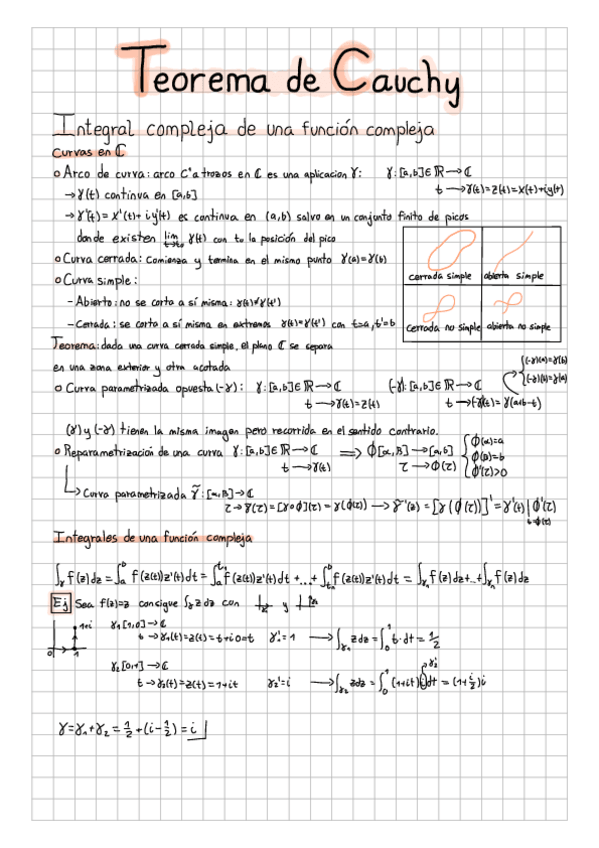 Teorema de Cauchy
Integral compleja de una función compleja
Curvas en ℂ
o Arco de curva: arco C¹ a trozos en ℂ es una aplicacion γ: γ:[a,b]∈ℝ→ℂ
t→γ(t)=z(t)=x(t)+iy(t)
→γ(t) continua en [a,b]
→γ'(t)=x'(t)+iy'(t) es continua en (a,b) salvo en un conjunto finito de picos
donde existen lim t→t₀ γ(t) con t₀ la posición del pico
o Curva cerrada: comienza y termina en el mismo punto γ(a)=γ(b)
cerrada simple abierta simple
o Curva simple:
- Abierto: no se corta a sí misma: γ(t)≠γ(t')
- Cerrada: se corta a sí misma en extremos γ(t)=γ(t') con t=a, t'=b
cerrada no simple abierta no simple
Teorema: dada una curva cerrada simple, el plano ℂ se separa
en una zona exterior y otra acotada
(-γ)(a)=γ(b)
(-γ)(b)=γ(a)
o Curva parametrizada opuesta (-γ): γ:[a,b]∈ℝ→ℂ (-γ):[a,b]∈ℝ→ℂ
t→γ(t)=z(t) t→(-γ)(t)=γ(a+b-t)
(γ) y (-γ) tienen la misma imagen pero recorrida en el sentido contrario.
o Reparametrización de una curva γ:[a,b]∈ℝ→ℂ ⟹ ϕ[α,β]→[a,b] { ϕ(α)=a
t→γ(t) τ→ϕ(τ) ϕ(β)=b
ϕ'(τ)>0
↳ Curva parametrizada γ̃:[α,β]→ℂ
τ→γ̃(τ)=[γ∘ϕ](τ)=γ(ϕ(τ)) → γ̃'(τ)=[γ(ϕ(τ))]'=γ'(t)|ϕ'(τ)
t=ϕ(τ)
Integrales de una función compleja
∫γ f(z)dz=∫ₐᵇ f(z(t))z'(t)dt=∫ₐ^t₁ f(z(t))z'(t)dt+...+∫ₜₙᵇ f(z(t))z'(t)dt=∫γ₁ f(z)dz+...+∫γₙ f(z)dz
Ej Sea f(z)=z consigue ∫γ z dz con y
1+i γ₁[1,0]→ℂ
t→γ₁(t)=z(t)=t+i0=t γ₁'=1 →∫γ₁ zdz=∫₀¹ t·dt=1/2
0 1
γ₂[0,1]→ℂ γ₂'
t→γ₂(t)=z(t)=1+it γ₂'=i →∫γ₂ zdz=∫₀¹ (1+it)i dt=(1+i/2)i
γ=γ₁+γ₂=1/2+(i-1/2)=i